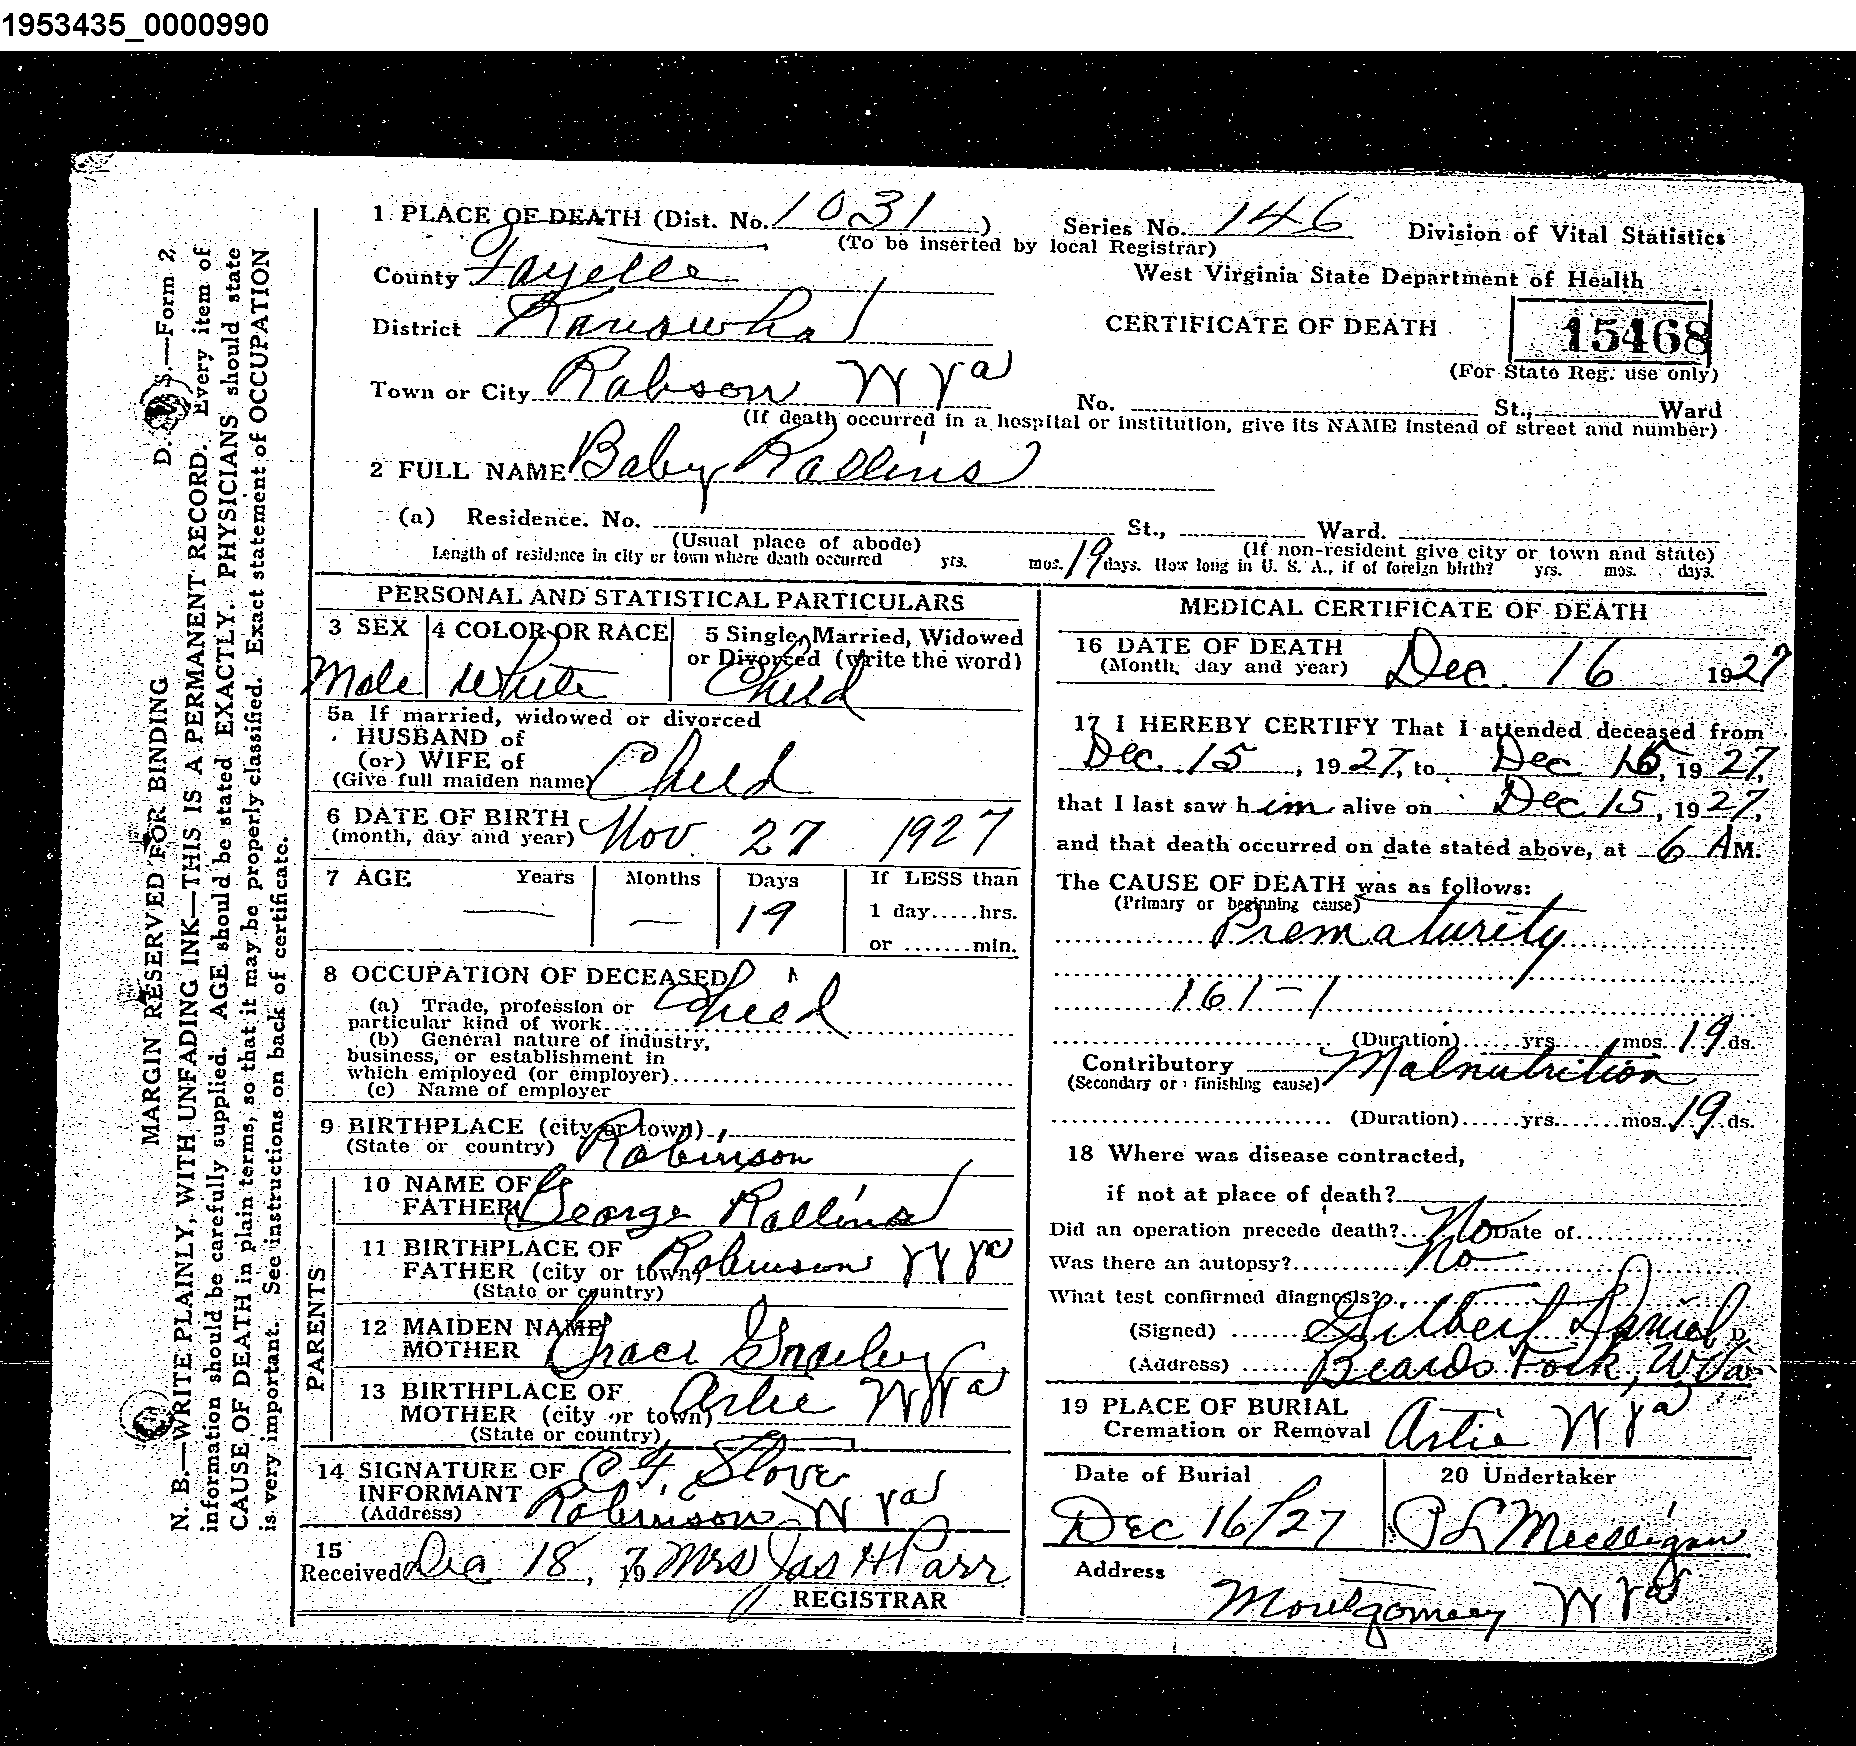 1953435_0000990
1 PLACE OF DEATH (Dist. No. 1031 ) Series No. 146 Division of Vital Statistics
(To be inserted by local Registrar)
County Fayette West Virginia State Department of Health
District Kanawha CERTIFICATE OF DEATH 15468
(For State Reg. use only)
Town or City Robson W Va No. St., Ward
(If death occurred in a hospital or institution, give its NAME instead of street and number)
2 FULL NAME Baby Rollins
(a) Residence. No. St., Ward.
(Usual place of abode) (If non-resident give city or town and state)
Length of residence in city or town where death occurred yrs. mos. 19 days. How long in U. S. A., if of foreign birth? yrs. mos. days.
PERSONAL AND STATISTICAL PARTICULARS
3 SEX 4 COLOR OR RACE 5 Single, Married, Widowed
or Divorced (write the word)
Male White Child
5a If married, widowed or divorced
HUSBAND of
(or) WIFE of
(Give full maiden name) Child
6 DATE OF BIRTH
(month, day and year) Nov 27 1927
7 AGE Years Months Days If LESS than
— — 19 1 day.....hrs.
or .......min.
8 OCCUPATION OF DECEASED
(a) Trade, profession or
particular kind of work Child
(b) General nature of industry,
business, or establishment in
which employed (or employer)
(c) Name of employer
9 BIRTHPLACE (city or town)
(State or country) Robinson
PARENTS
10 NAME OF
FATHER George Rollins
11 BIRTHPLACE OF
FATHER (city or town) Robinson W Va
(State or country)
12 MAIDEN NAME
MOTHER Grace
13 BIRTHPLACE OF
MOTHER (city or town) Artie W Va
(State or country)
14 SIGNATURE OF
INFORMANT C F Stover
(Address) Robinson W Va
15
Received Dec 18, 19 Mrs Jas H Parr
REGISTRAR
MEDICAL CERTIFICATE OF DEATH
16 DATE OF DEATH
(Month, day and year) Dec. 16 1927
17 I HEREBY CERTIFY That I attended deceased from
Dec. 15, 1927, to Dec 15, 1927,
that I last saw him alive on Dec 15, 1927,
and that death occurred on date stated above, at 6 AM.
The CAUSE OF DEATH was as follows:
(Primary or beginning cause)
Prematurity
161-1
(Duration) yrs. mos. 19 ds.
Contributory Malnutrition
(Secondary or finishing cause)
(Duration) yrs. mos. 19 ds.
18 Where was disease contracted,
if not at place of death?
Did an operation precede death? No Date of
Was there an autopsy? No
What test confirmed diagnosis?
(Signed) Gilbert Daniel
(Address) Beards Fork, W Va
19 PLACE OF BURIAL
Cremation or Removal Artie W Va
Date of Burial 20 Undertaker
Dec 16/27 P L
Address
Montgomery W Va
D. S.—Form 2.
MARGIN RESERVED FOR BINDING
N. B.—WRITE PLAINLY, WITH UNFADING INK—THIS IS A PERMANENT RECORD. Every item of
information should be carefully supplied. AGE should be stated EXACTLY. PHYSICIANS should state
CAUSE OF DEATH in plain terms, so that it may be properly classified. Exact statement of OCCUPATION
is very important. See instructions on back of certificate.